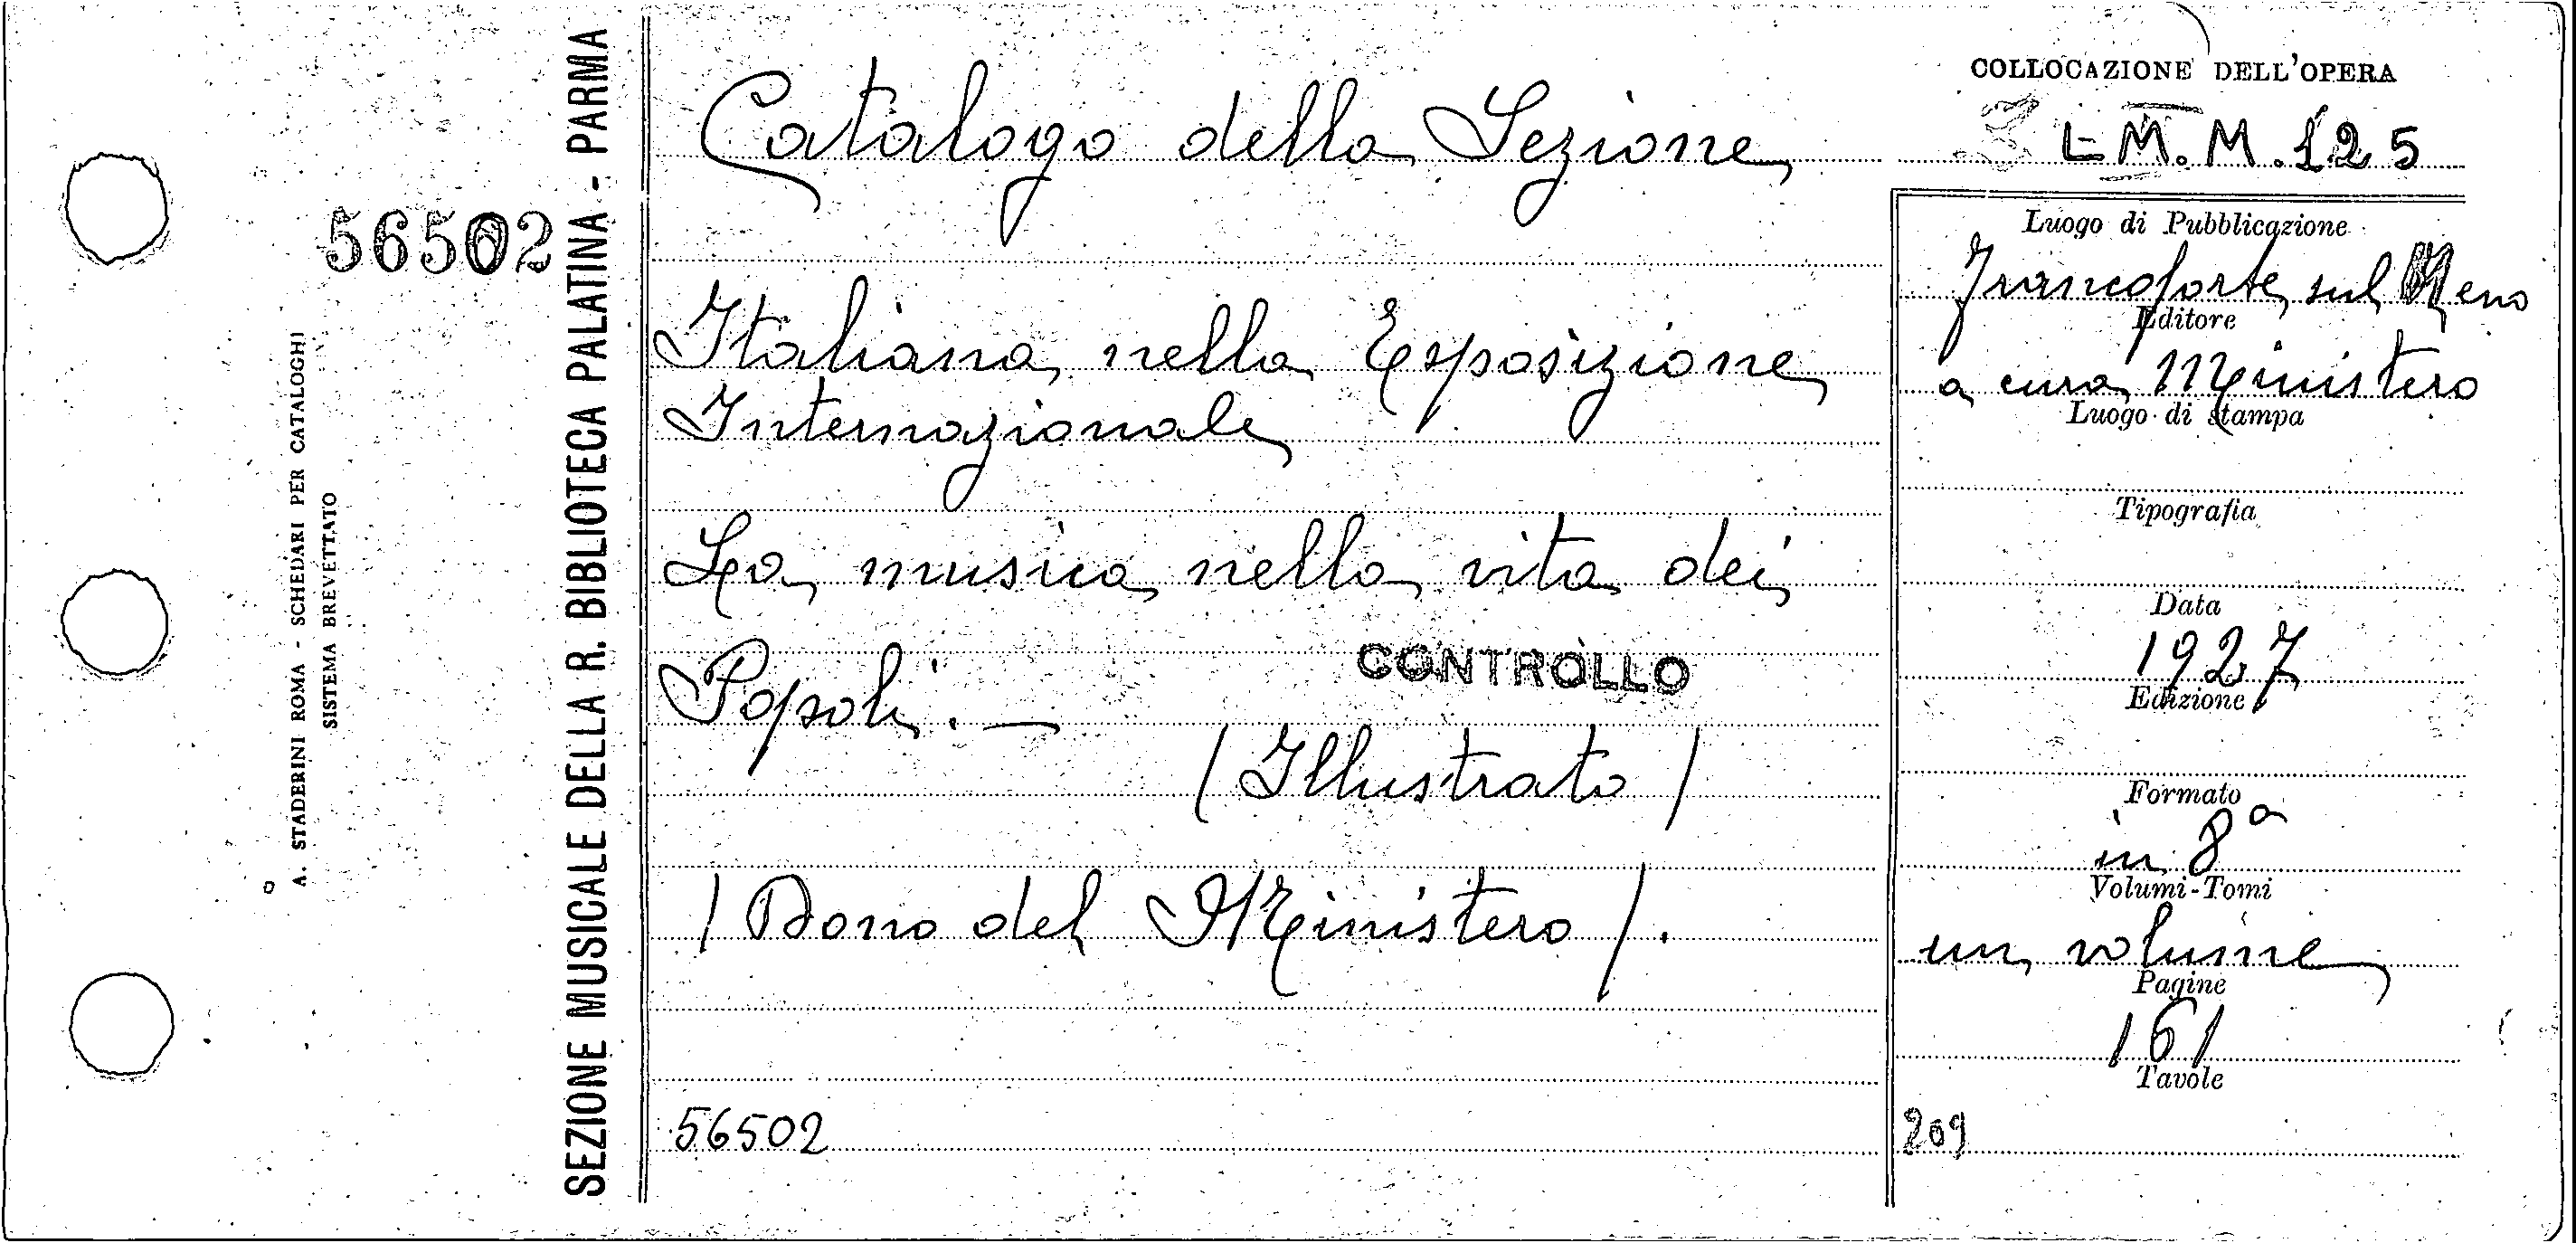 56502
A. STADERINI ROMA - SCHEDARI PER CATALOGHI
SISTEMA BREVETTATO
SEZIONE MUSICALE DELLA R. BIBLIOTECA PALATINA - PARMA
Catalogo della Sezione
Italiana nella Esposizione
Internazionale
La musica nella vita dei
Popoli. —
CONTROLLO
/ Illustrato /
/ Dono del Ministero /.
56502
COLLOCAZIONE DELL'OPERA
M. M. 125
Luogo di Pubblicazione
Francoforte sul Meno
Editore
a cura Ministero
Luogo di stampa
Tipografia
Data
1927
Edizione
Formato
in 8°
Volumi-Tomi
un volume
Pagine
161
Tavole
209